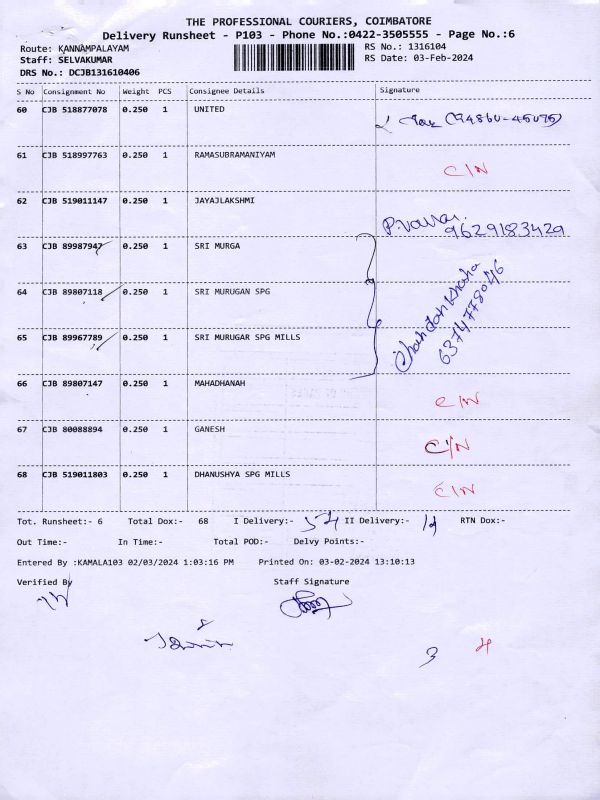 THE PROFESSIONAL COURIERS, COIMBATORE
Delivery Runsheet - P103 - Phone No.:0422-3505555 - Page No.:6
Route: KANNAMPALAYAM
RS No.: 1316104
Staff: SELVAKUMAR
RS Date: 03-Feb-2024
DRS No.: DCJB131610406
S No Consignment No Weight PCS Consignee Details Signature
60 CJB 518877078 0.250 1 UNITED
61 CJB 518997763 0.250 1 RAMASUBRAMANIYAM C/N
62 CJB 519011147 0.250 1 JAYAJLAKSHMI
9629183429
63 CJB 89987947 0.250 1 SRI MURGA
64 CJB 89807118 0.250 1 SRI MURUGAN SPG
6374778046
65 CJB 89967789 0.250 1 SRI MURUGAR SPG MILLS
66 CJB 89807147 0.250 1 MAHADHANAH C/N
67 CJB 80088894 0.250 1 GANESH C/N
68 CJB 519011803 0.250 1 DHANUSHYA SPG MILLS C/N
Tot. Runsheet:- 6 Total Dox:- 68 I Delivery:- 54 II Delivery:- 14 RTN Dox:-
Out Time:- In Time:- Total POD:- Delvy Points:-
Entered By :KAMALA103 02/03/2024 1:03:16 PM Printed On: 03-02-2024 13:10:13
Verified By Staff Signature
3 4